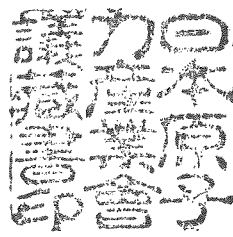 日本原子
力産業會
議藏書印